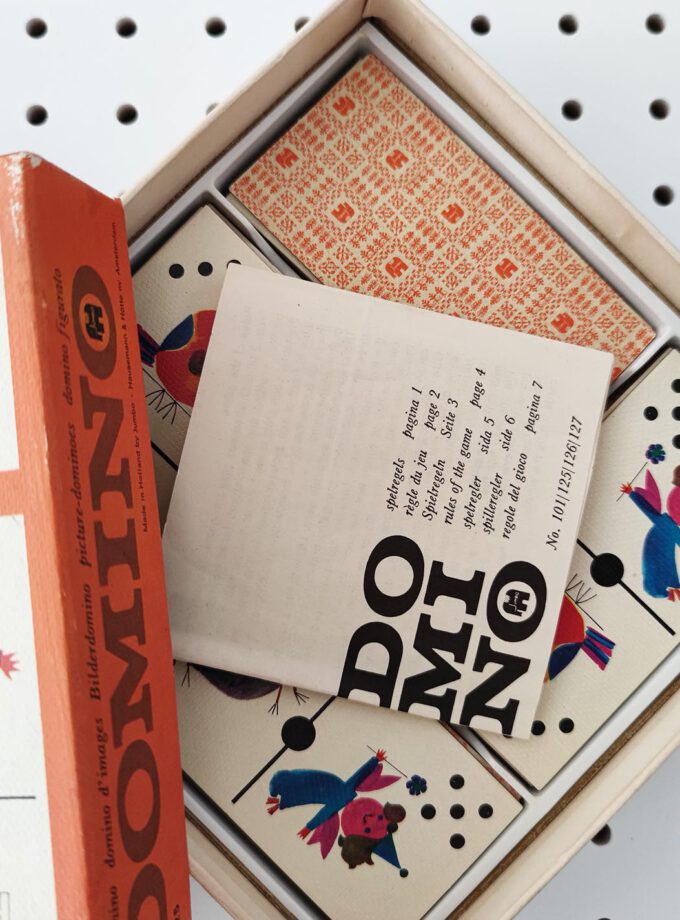 spelregels pagina 1
règle du jeu page 2
Spielregeln Seite 3
rules of the game page 4
spelregler sida 5
spilleregler side 6
regole del gioco pagina 7
No. 101|125|126|127
DO
MI
NO
domino d'images Bilderdomino picture-dominoes domino figurato
DOMINO
DOMINO
Made in Holland by Jumbo - Hausemann & Hötte nv. Amsterdam